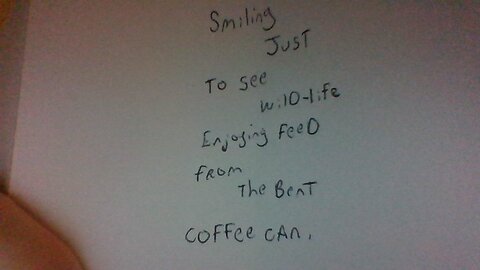 Smiling
JUST
To see
wilD-life
Enjoying FeeD
FROM
The BenT
COFFee CAn.